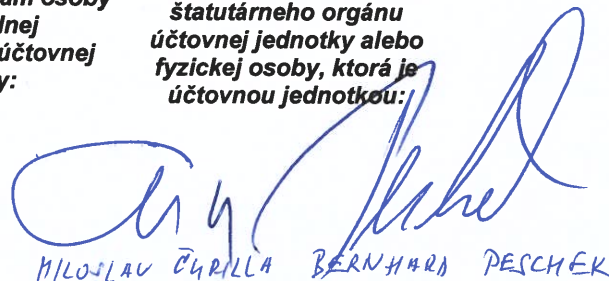 osoby
štatutárneho orgánu
účtovnej jednotky alebo
účtovnej
fyzickej osoby, ktorá je
účtovnou jednotkou:
MILOSLAV ČURILLA BERNHARD PESCHEK